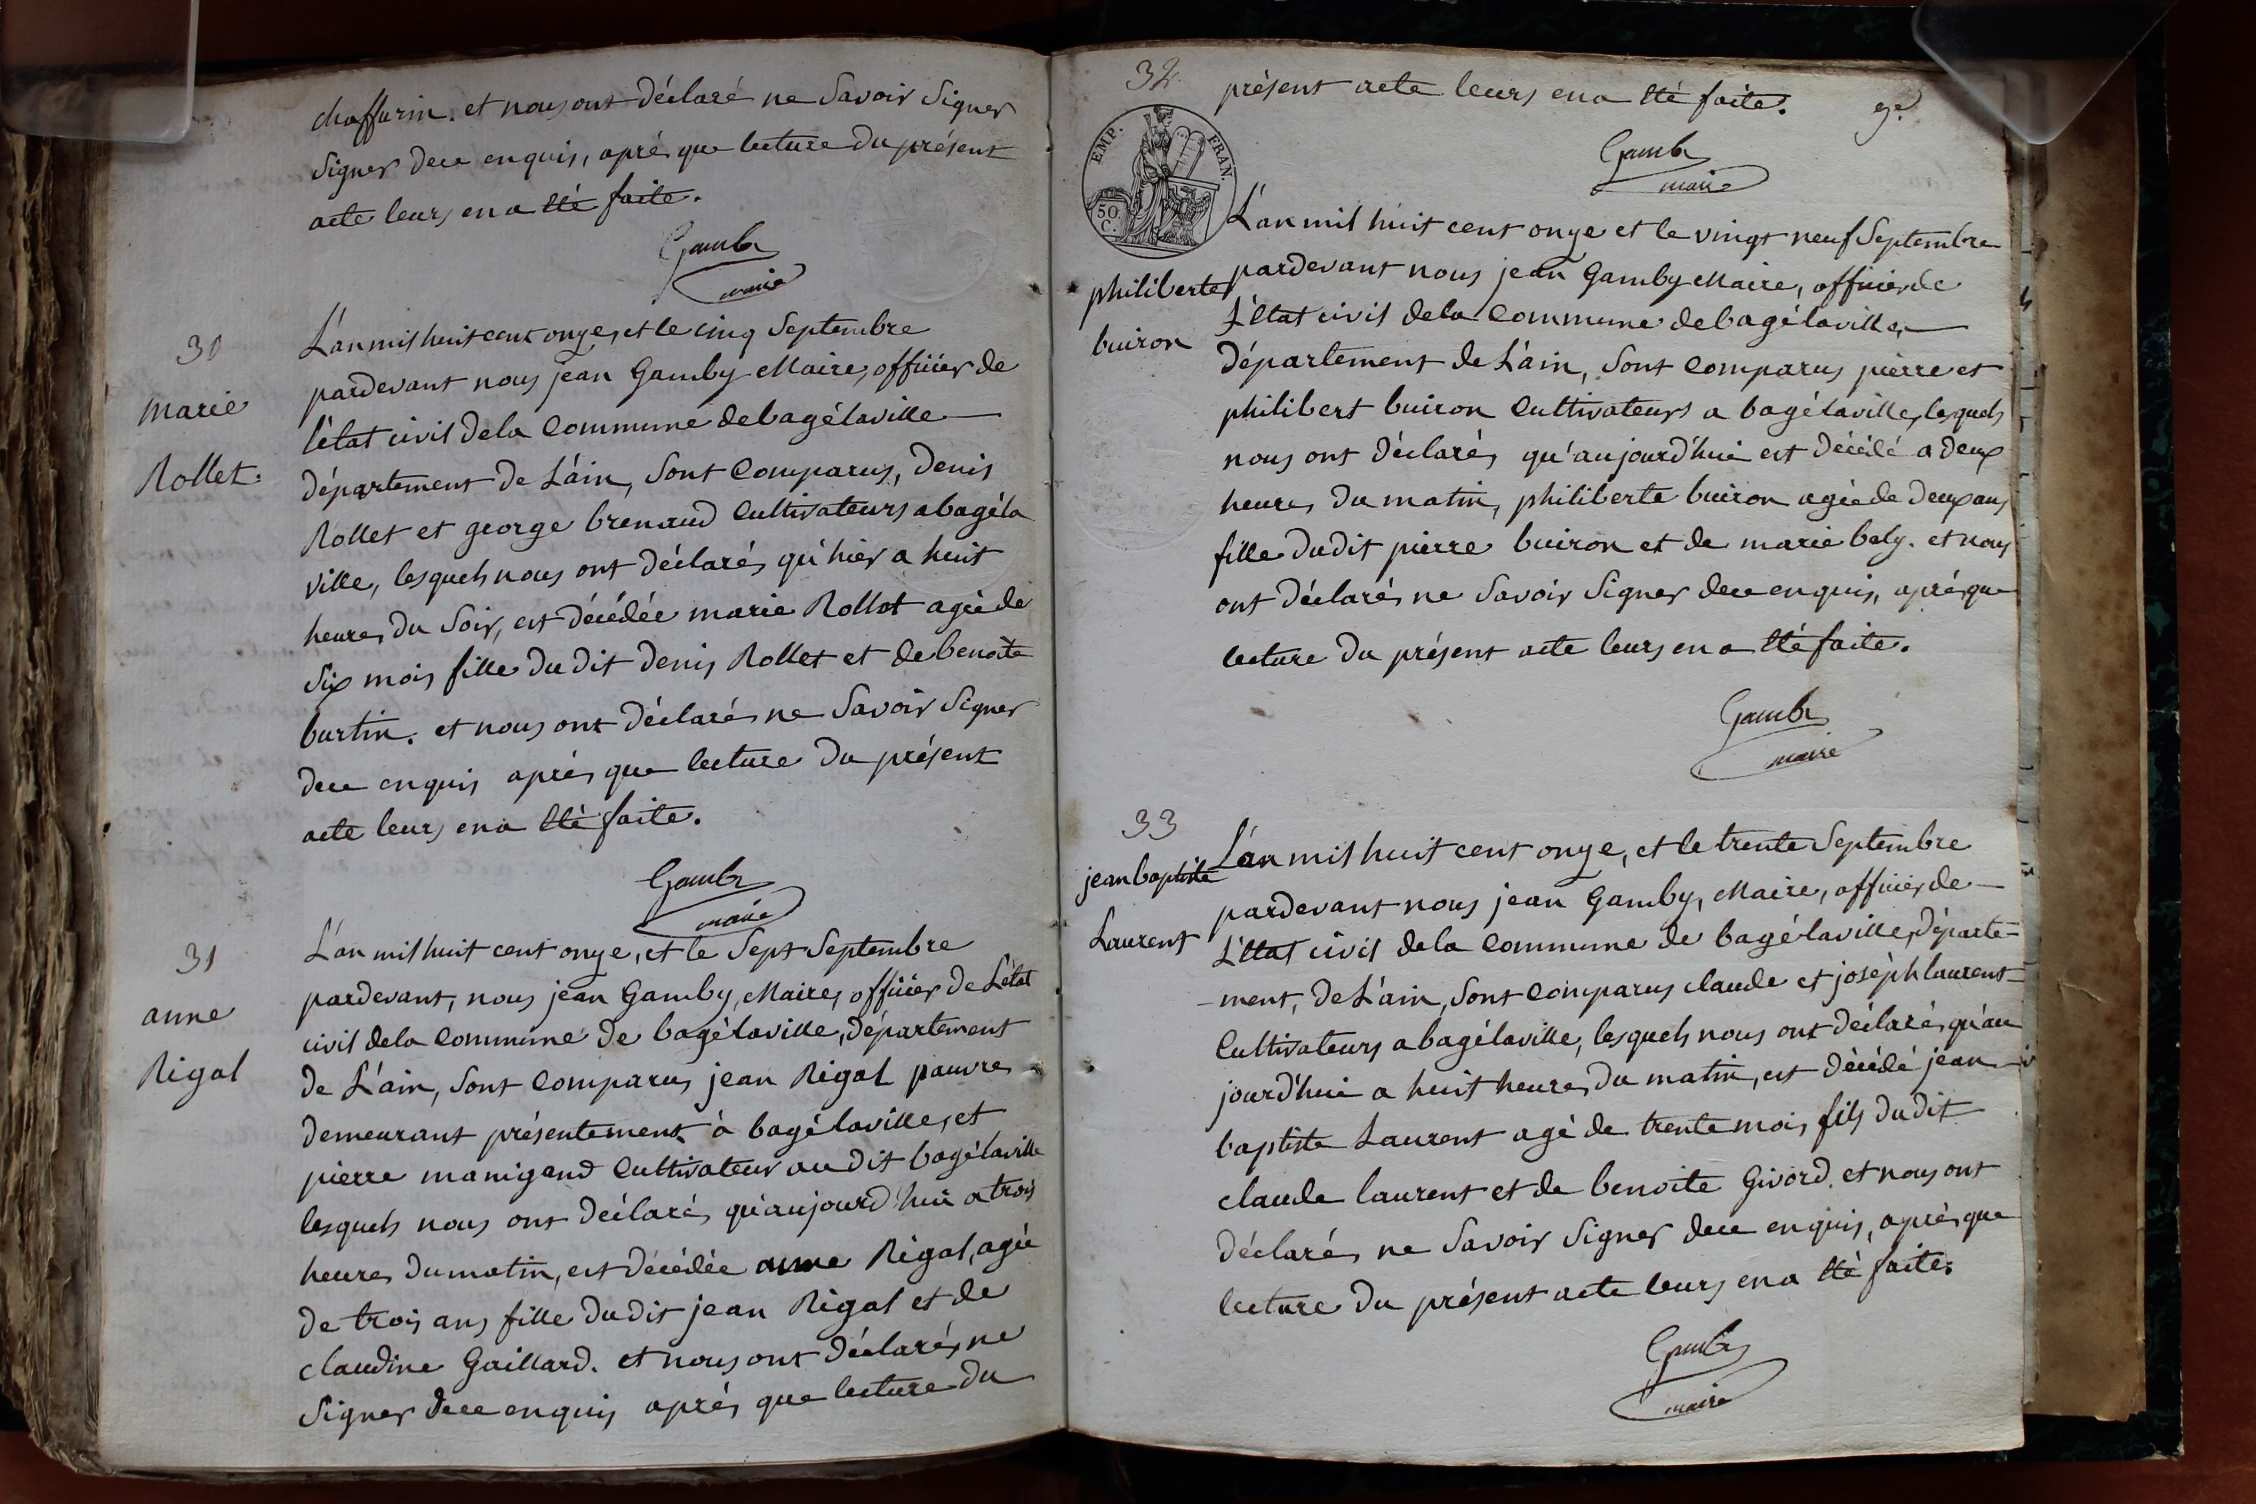 chaffurin. et nous ont déclaré ne Savoir Signer
Signer dece enquis, apré que lecture du présent
acte leurs en a été faite.
Gamby
maire
30
marie
Rollet.
L'an mil huit cent onze, et le cinq Septembre
pardevant nous jean Gamby Maire, officier de
l'état civil dela Commune debagélaville
département de L'ain, Sont Comparus, denis
Rollet et george brenaud Cultivateurs abagéla
ville, lesquels nous ont déclarés qu'hier a huit
heures du Soir, est décédée marie Rollet agée de
Six mois fille du dit denis Rollet et de benoite
burtin. et nous ont déclarés ne Savoir Signer
dece enquis après que lecture du présent
acte leurs en a été faite.
Gamby
maire
31
anne
Rigal
L'an mil huit cent onze, et le Sept Septembre
pardevant, nous jean Gamby, Maire, officier de L'état
civil dela Commune de bagélaville, département
de L'ain, Sont Comparus jean Rigal pauvre
demeurant présentement à bagélaville, et
pierre manigand Cultivateur au dit bagélaville
lesquels nous ont déclarés qu'aujourd'hui a trois
heures dumatin, est décédée anne Rigal, agée
de trois ans fille dudit jean Rigal et de
claudine Gaillard. et nous ont déclarés ne
Signer dece enquis après que lecture du
32
présent acte leurs en a été faite.
Gamby
maire
EMP. FRAN.
50
C.
philiberte
buiron
L'an mil huit cent onze et le vingt neuf Septembre
pardevant nous jean Gamby Maire, officier de
L'état civil dela Commune debagélaville,
département de L'ain, Sont Comparus pierre et
philibert buiron Cultivateurs a bagélaville, lesquels
nous ont déclarés qu'aujourd'hui est décédé a deux
heures du matin, philiberte buiron agée de deux ans
fille dudit pierre buiron et de marie bely. et nous
ont déclarés ne Savoir Signer dece enquis, après que
lecture du présent acte leurs en a été faite.
Gamby
maire
33
jean baptiste
Laurent
L'an mil huit cent onze, et le trente Septembre
pardevant nous jean Gamby, Maire, officier de
L'état civil dela Commune de bagélaville, départe=
-ment, de L'ain, Sont Comparus claude et joséph laurent
Cultivateurs abagélaville, lesquels nous ont déclarés qu'au
jourd'hui a huit heures du matin, est décédé jean
baptiste Laurent agé de trente mois, fils dudit
claude laurent et de benoite Givord. et nous ont
déclarés ne Savoir Signer dece enquis, après que
lecture du présent acte leurs en a été faite.
Gamby
maire